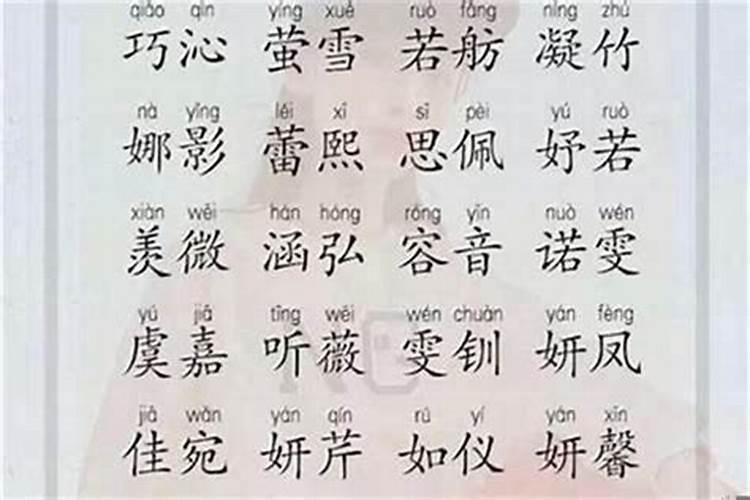 qiǎo qìn yíng xuě ruò fǎng níng zhú
巧沁 萤雪 若舫 凝竹
nà yǐng lěi xī sī pèi yú ruò
娜影 蕾熙 思佩 妤若
xiàn wēi hán hóng róng yīn nuò wén
羡微 涵弘 容音 诺雯
yú jiā tīng wēi wén chuàn yán fèng
虞嘉 听薇 雯钏 妍凤
jiā wǎn yán qín rú yí yán xīn
佳宛 妍芹 如仪 妍馨